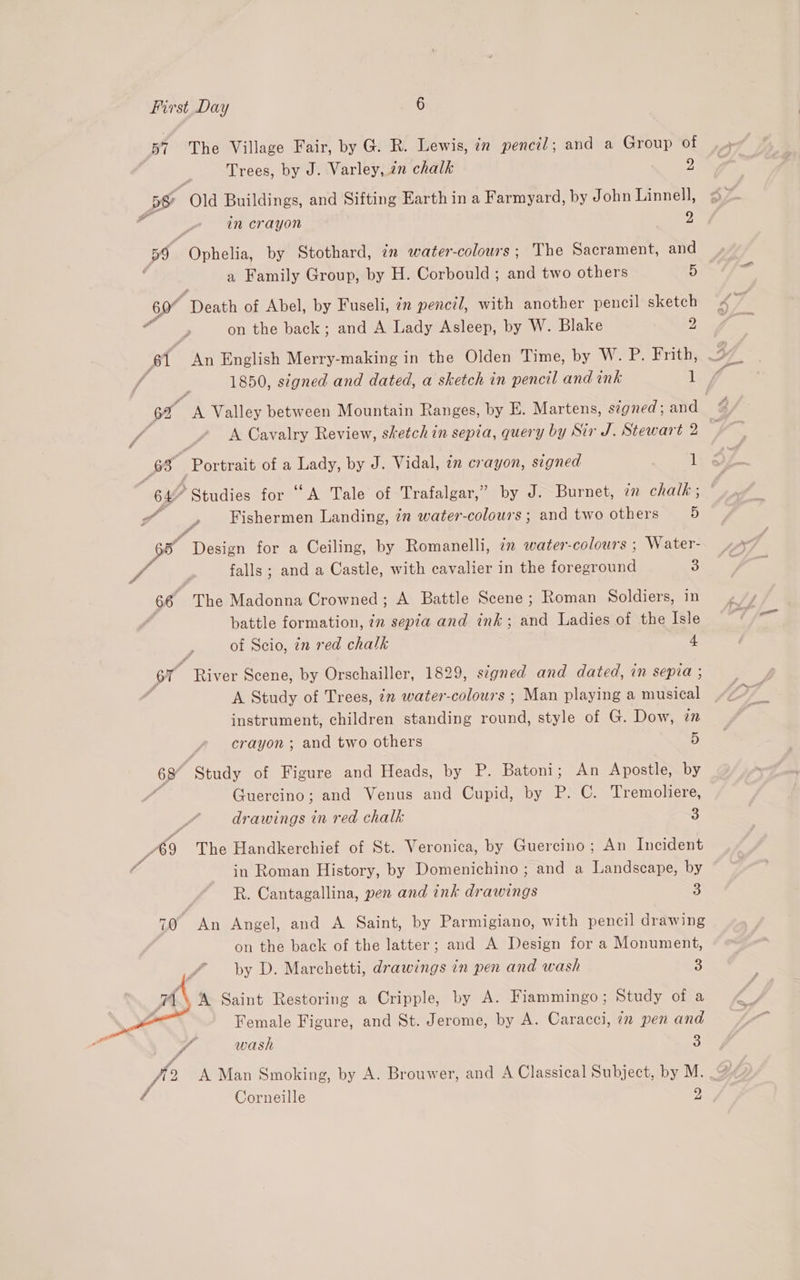 First Day 6
57 The Village Fair, by G. R. Lewis, in pencil; and a Group of
Trees, by J. Varley, in chalk 2
58 Old Buildings, and Sifting Earth in a Farmyard, by John Linnell,
in crayon 2
59 Ophelia, by Stothard, in water-colours; The Sacrament, and
a Family Group, by H. Corbould; and two others 5
60 Death of Abel, by Fuseli, in pencil, with another pencil sketch
on the back; and A Lady Asleep, by W. Blake 2
61 An English Merry-making in the Olden Time, by W. P. Frith,
1850, signed and dated, a sketch in pencil and ink 1
62 A Valley between Mountain Ranges, by E. Martens, signed; and
A Cavalry Review, sketch in sepia, query by Sir J. Stewart 2
63 Portrait of a Lady, by J. Vidal, in crayon, signed 1
64 Studies for “A Tale of Trafalgar,” by J. Burnet, in chalk;
Fishermen Landing, in water-colours; and two others 5
65 Design for a Ceiling, by Romanelli, in water-colours; Water-
falls; and a Castle, with cavalier in the foreground 3
66 The Madonna Crowned; A Battle Scene; Roman Soldiers, in
battle formation, in sepia and ink; and Ladies of the Isle
of Scio, in red chalk 4
67 River Scene, by Orschailler, 1829, signed and dated, in sepia;
A Study of Trees, in water-colours; Man playing a musical
instrument, children standing round, style of G. Dow, in
crayon; and two others 5
68 Study of Figure and Heads, by P. Batoni; An Apostle, by
Guercino; and Venus and Cupid, by P. C. Tremoliere,
drawings in red chalk 3
69 The Handkerchief of St. Veronica, by Guercino; An Incident
in Roman History, by Domenichino; and a Landscape, by
R. Cantagallina, pen and ink drawings 3
70 An Angel, and A Saint, by Parmigiano, with pencil drawing
on the back of the latter; and A Design for a Monument,
by D. Marchetti, drawings in pen and wash 3
71 A Saint Restoring a Cripple, by A. Fiammingo; Study of a
Female Figure, and St. Jerome, by A. Caracci, in pen and
wash 3
72 A Man Smoking, by A. Brouwer, and A Classical Subject, by M.
Corneille 2